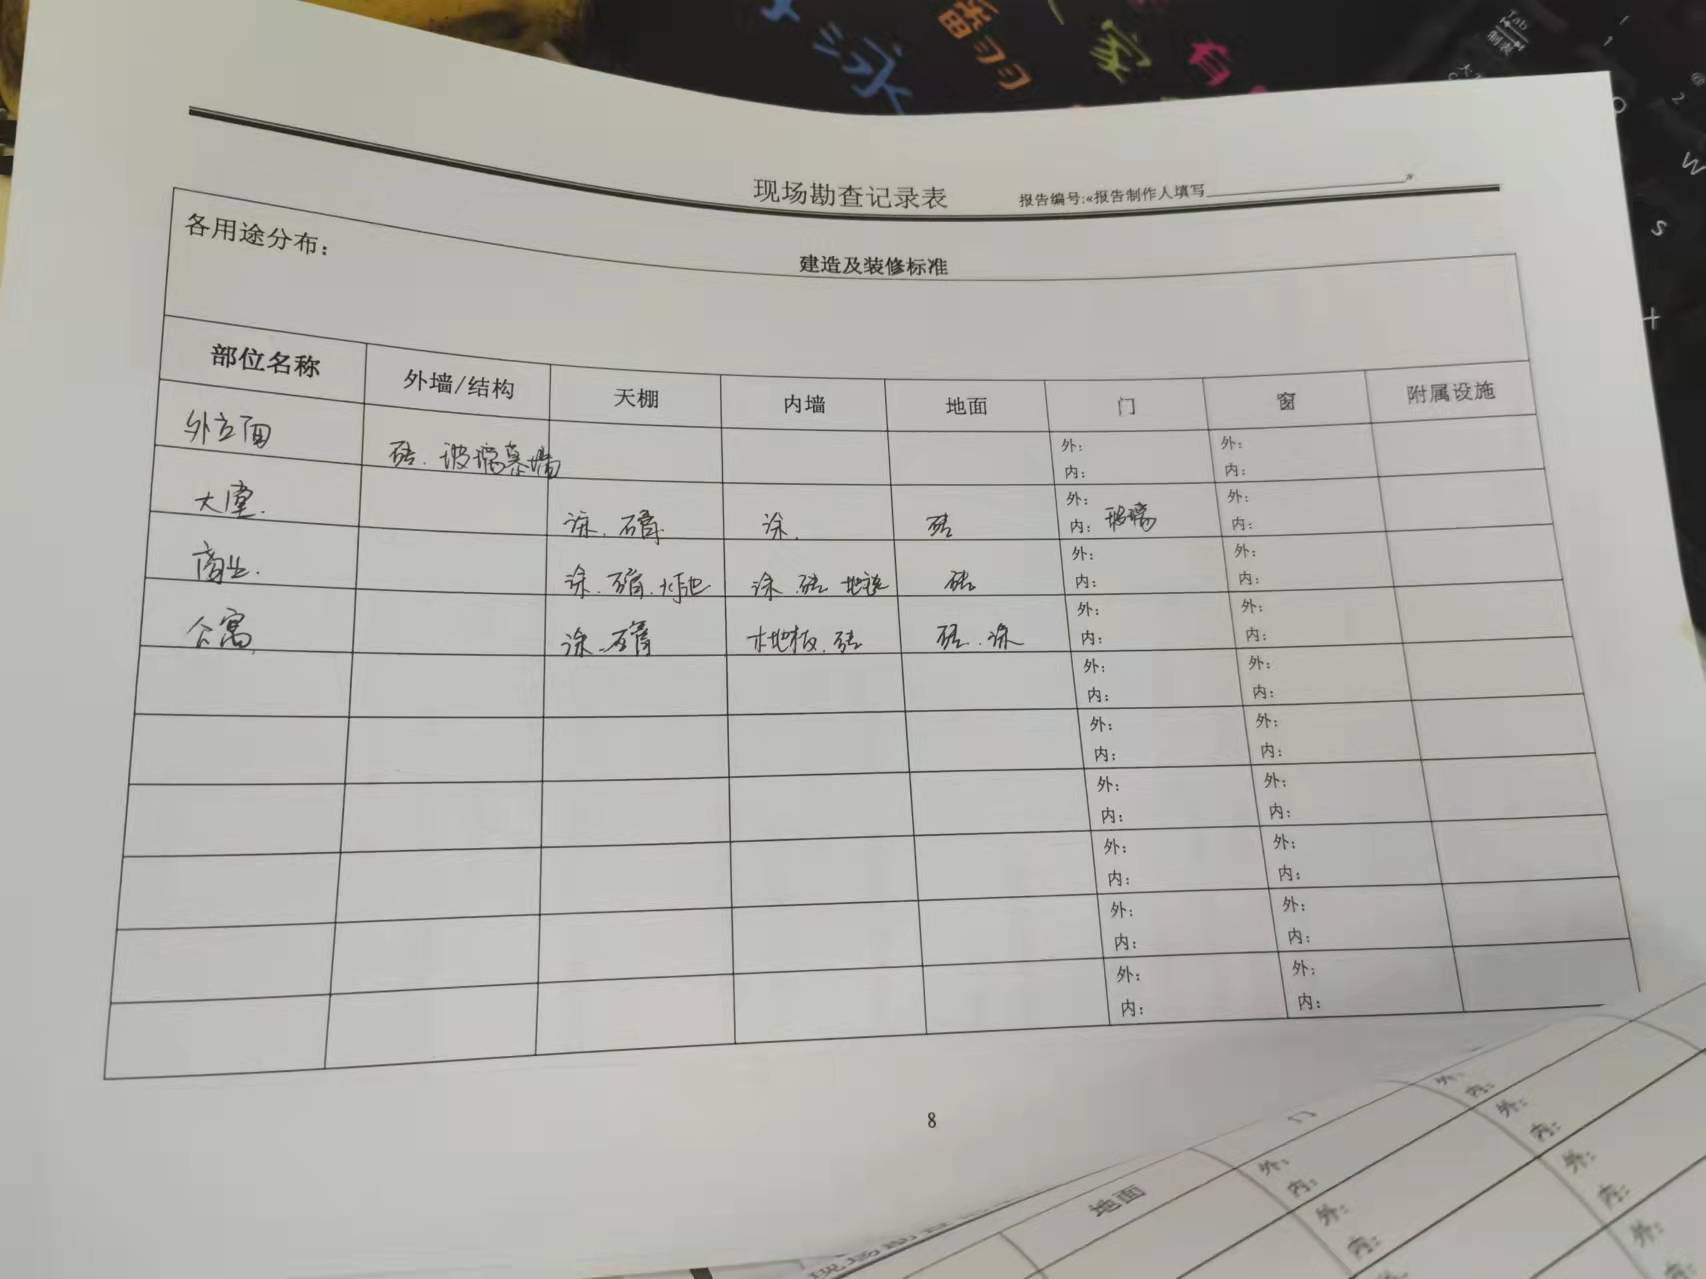 现场勘查记录表 报告编号:«报告制作人填写____________»
建造及装修标准
各用途分布：
部位名称 外墙/结构 天棚 内墙 地面 门 窗 附属设施
外立面 砖.玻璃幕墙 外： 内： 外： 内：
大堂. 涂. 涂. 砖 外： 内：玻璃 外： 内：
商业. 涂. 涂.砖 砖 外： 内： 外： 内：
公寓 涂. 木地板.砖 砖.涂 外： 内： 外： 内：
外： 内： 外： 内：
外： 内： 外： 内：
外： 内： 外： 内：
外： 内： 外： 内：
外： 内： 外： 内：
外： 内： 外： 内：
8
地面
门
外：
内：
外：
内：
外：
内：
外：
内：
外：
内：
Tab
W
S